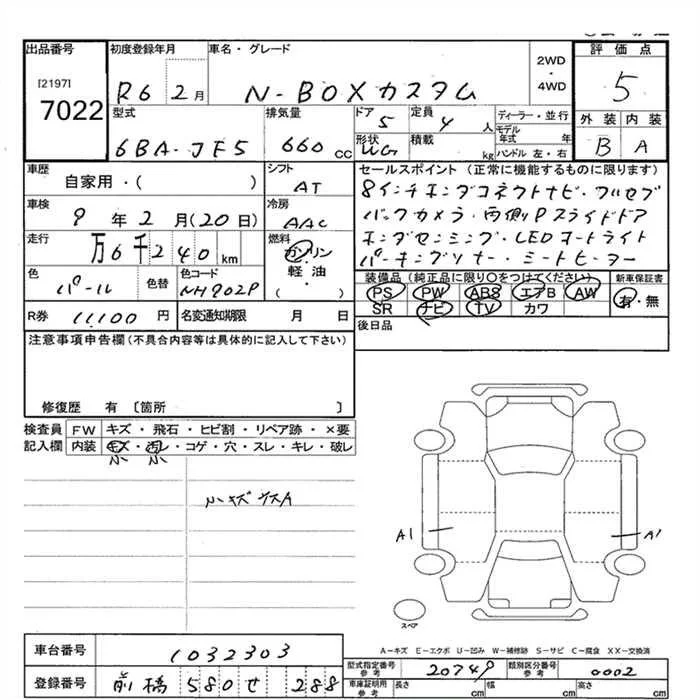 出品番号 初度登録年月 車名・グレード 2WD ・ 4WD 評価点
[2197] 7022 R6 2月 N-BOXカスタム 5
型式 排気量 ドア 定員 ディーラー・並行 外装 内装
6BA-JF5 660cc 5 4人 モデル年式 年 B A
形状 積載 ハンドル 左・右
WG kg
車歴 自家用・( ) シフト AT セールスポイント (正常に機能するものに限ります)
8インチホンダコネクトナビ・フルセグ
車検 9年2月(20日) 冷房 AAC バックカメラ・両側Pスライドドア
走行 万6千240km 燃料 ガソリン 軽油・( ) ホンダセンシング・LEDオートライト
パーキングソナー・シートヒーター
色 パール 色替 色コード NH902P 装備品 (純正品に限り○をつけてください) 新車保証書
PS PW ABS エアB AW 有・無
R券 11,100円 名変通知期限 月 日 SR ナビ TV カワ
後日品
注意事項申告欄(不具合内容等は具体的に記入して下さい)
修復歴 有 〔箇所 〕
検査員 FW キズ・飛石・ヒビ割・リペア跡・×要
記入欄 内装 キズ・汚レ・コゲ・穴・スレ・キレ・破レ
小 小
小キズウスA
A1 A1
スペア
A-キズ E-エクボ U-凹み W-補修跡 S-サビ C-腐食 XX-交換済
車台番号 1032303
型式指定番号 参考 20749 類別区分番号 参考 0002
登録番号 前橋 580 せ 288
車庫証明用 参考 長さ cm 幅 cm 高さ cm